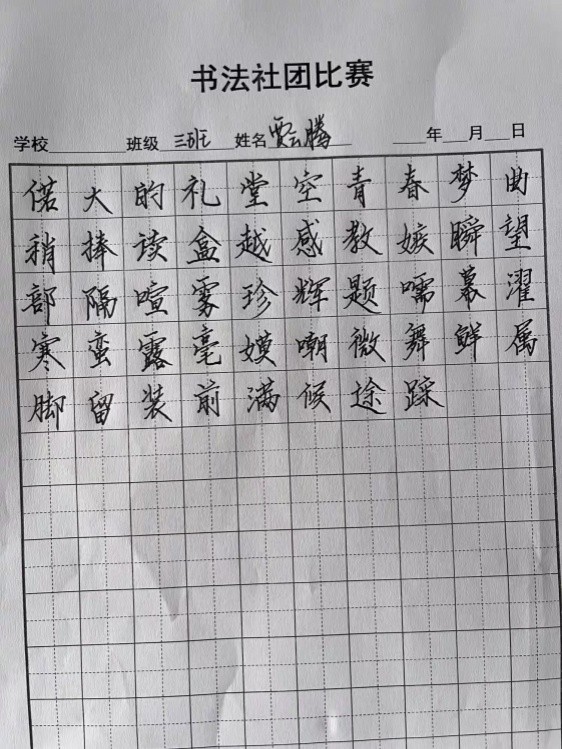 书法社团比赛
学校 班级 三班 姓名 贾云腾 年 月 日
偌大的礼堂空青春梦曲
稍捧读盒越感教嫉瞬望
部隔喧雾珍辉题嚅幕濯
寒蛮露毫嫫嘲微舞鲜属
脚留装前满候途踩